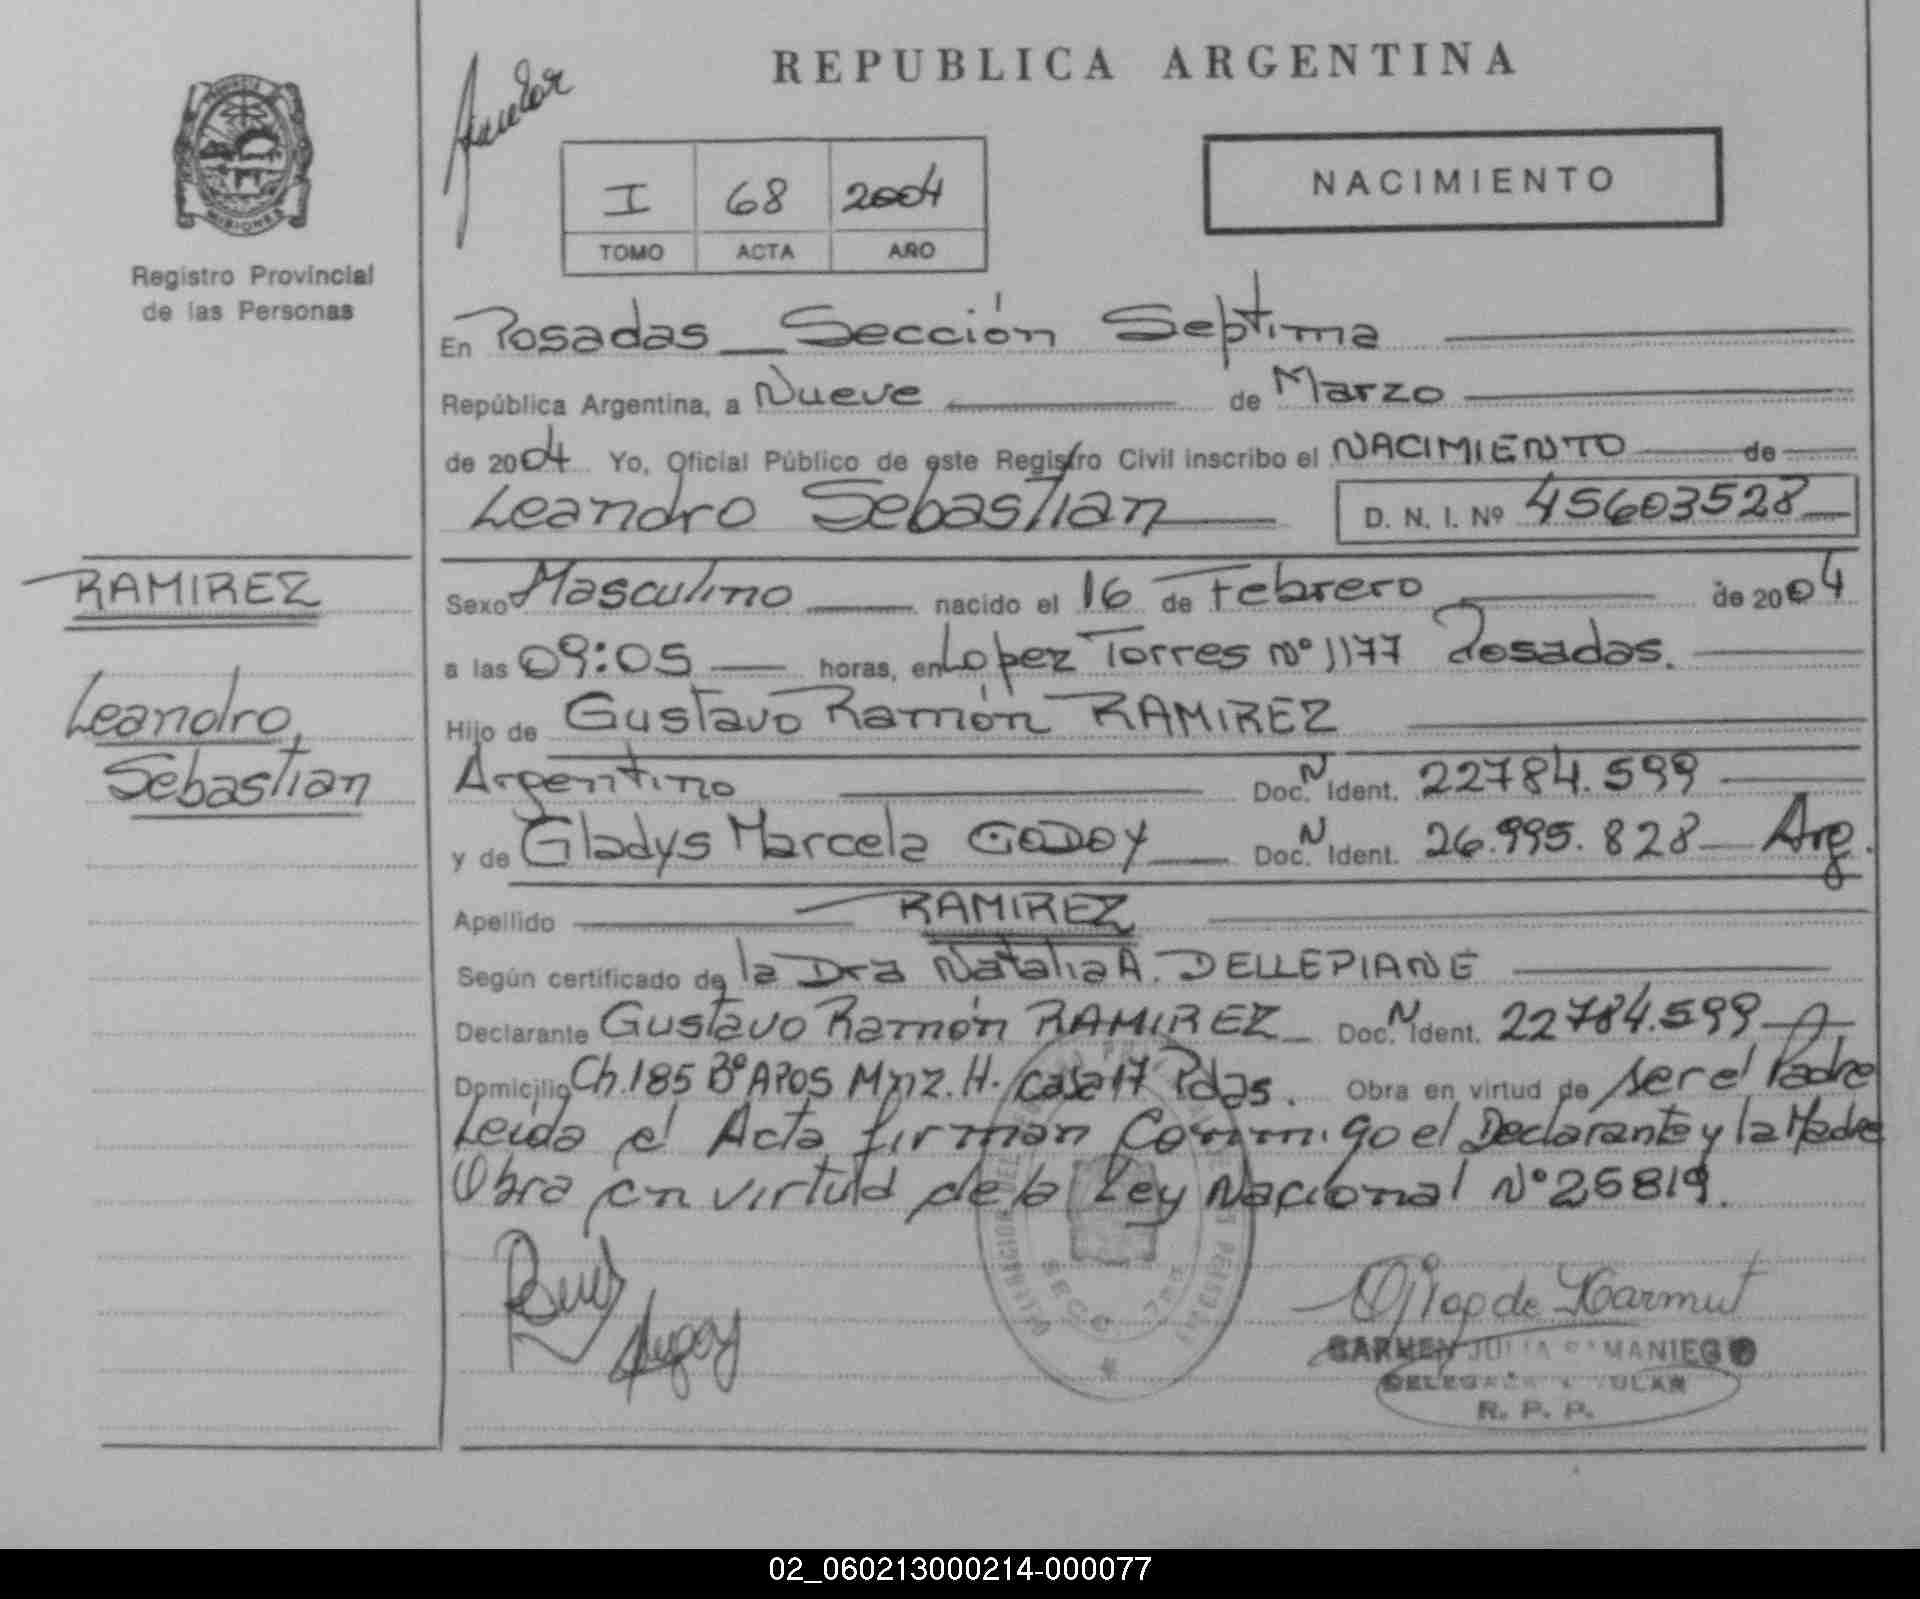 REPUBLICA ARGENTINA
NACIMIENTO
I 68 2004
TOMO ACTA AÑO
MISIONES
Registro Provincial
de las Personas
En Posadas Sección Septima
República Argentina, a Nueve de Marzo
de 2004 Yo, Oficial Público de este Registro Civil inscribo el NACIMIENTO de
Leandro Sebastian D. N. I. Nº 45603528
RAMIREZ
Leandro,
Sebastian
Sexo Masculino nacido el 16 de Febrero de 2004
a las 09:05 horas, en López Torres Nº 1177 Posadas.
Hijo de Gustavo Ramón RAMIREZ
Argentino Doc. N Ident. 22784.599
y de Gladys Marcela GODOY Doc. N Ident. 26.995.828 Arg.
Apellido RAMIREZ
Según certificado de la Dra Natalia A. DELLEPIANE
Declarante Gustavo Ramón RAMIREZ Doc. N Ident. 22784.599
Domicilio Ch. 185 Bº APOS Mnz. H. casa 17 Pdas. Obra en virtud de ser el Padre
Leida el Acta firman Conmigo el Declarante y la Madre
Obra en virtud de la Ley Nacional Nº 25819.
CARMEN JULIA
R. P. P.
02_060213000214-000077